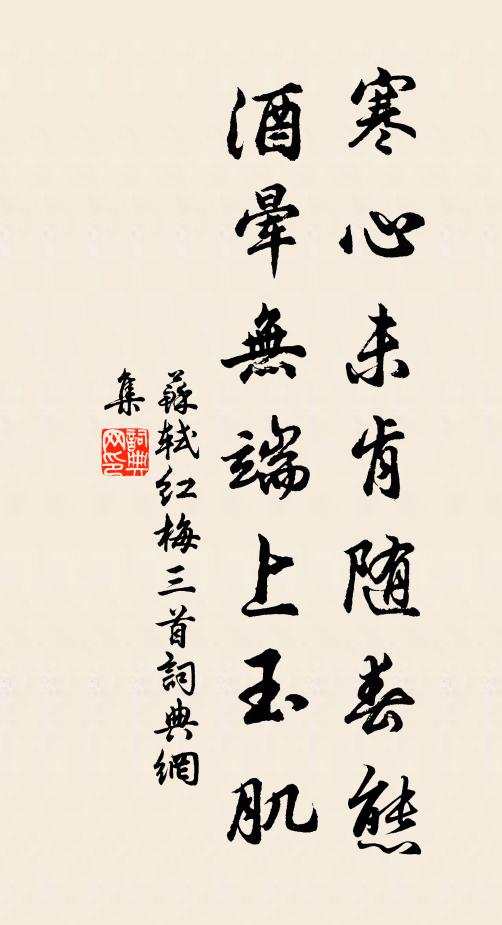 寒心未肯随春態
酒暈無端上玉肌
蘇軾红梅三首詞典網
集
詞典网印